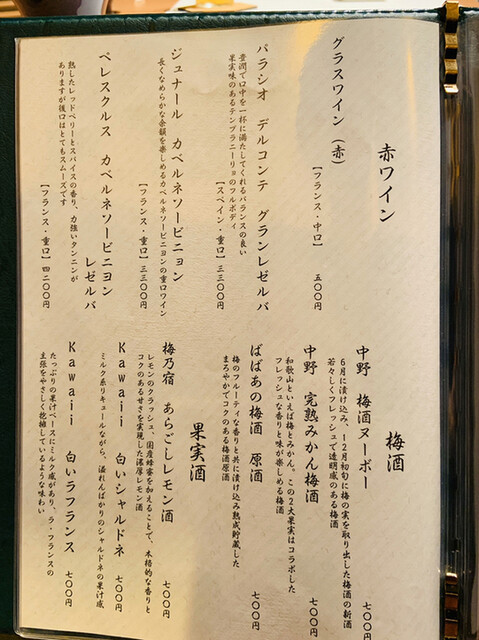 赤ワイン
グラスワイン(赤)
【フランス・中口】 五〇〇円
パラシオ デルコンテ グランレゼルバ
豊潤で口中を一杯に満たしてくれるバランスの良い
果実味のあるテンプラニーリョのフルボディ
【スペイン・重口】 三三〇〇円
ジュナール カベルネソービニョン
長くなめらかな余韻を楽しめるカベルネソービニョンの重口ワイン
【フランス・重口】 三三〇〇円
ペレスクルス カベルネソービニヨン
レゼルバ
熟したレッドベリーとスパイスの香り、力強いタンニンが
ありますが後口はとてもスムーズです
【フランス・重口】 四二〇〇円
梅酒
中野 梅酒ヌーボー
6月に漬け込み、12月初旬に梅の実を取り出した梅酒の新酒
若々しくフレッシュで透明感のある梅酒
七〇〇円
中野 完熟みかん梅酒
和歌山といえば梅とみかん。この2大果実はコラボした
フレッシュな香りと味が楽しめる梅酒
七〇〇円
ばばあの梅酒 原酒
梅のフルーティな香りと共に漬け込み熟成貯蔵した
まろやかでコクのある梅酒原酒
七〇〇円
果実酒
梅乃宿 あらごしレモン酒
レモンのクラッシュ、国産蜂蜜を加えることで、本格的な香りと
コクのある甘さを実現した濃厚レモン酒
七〇〇円
Kawaii 白いシャルドネ
ミルク系リキュールながら、溢れんばかりのシャルドネの果汁感
七〇〇円
Kawaii 白いラフランス
たっぷりの果汁ベースにミルク感があり、ラ・フランスの
主張をやさしく抱擁しているような味わい
七〇〇円